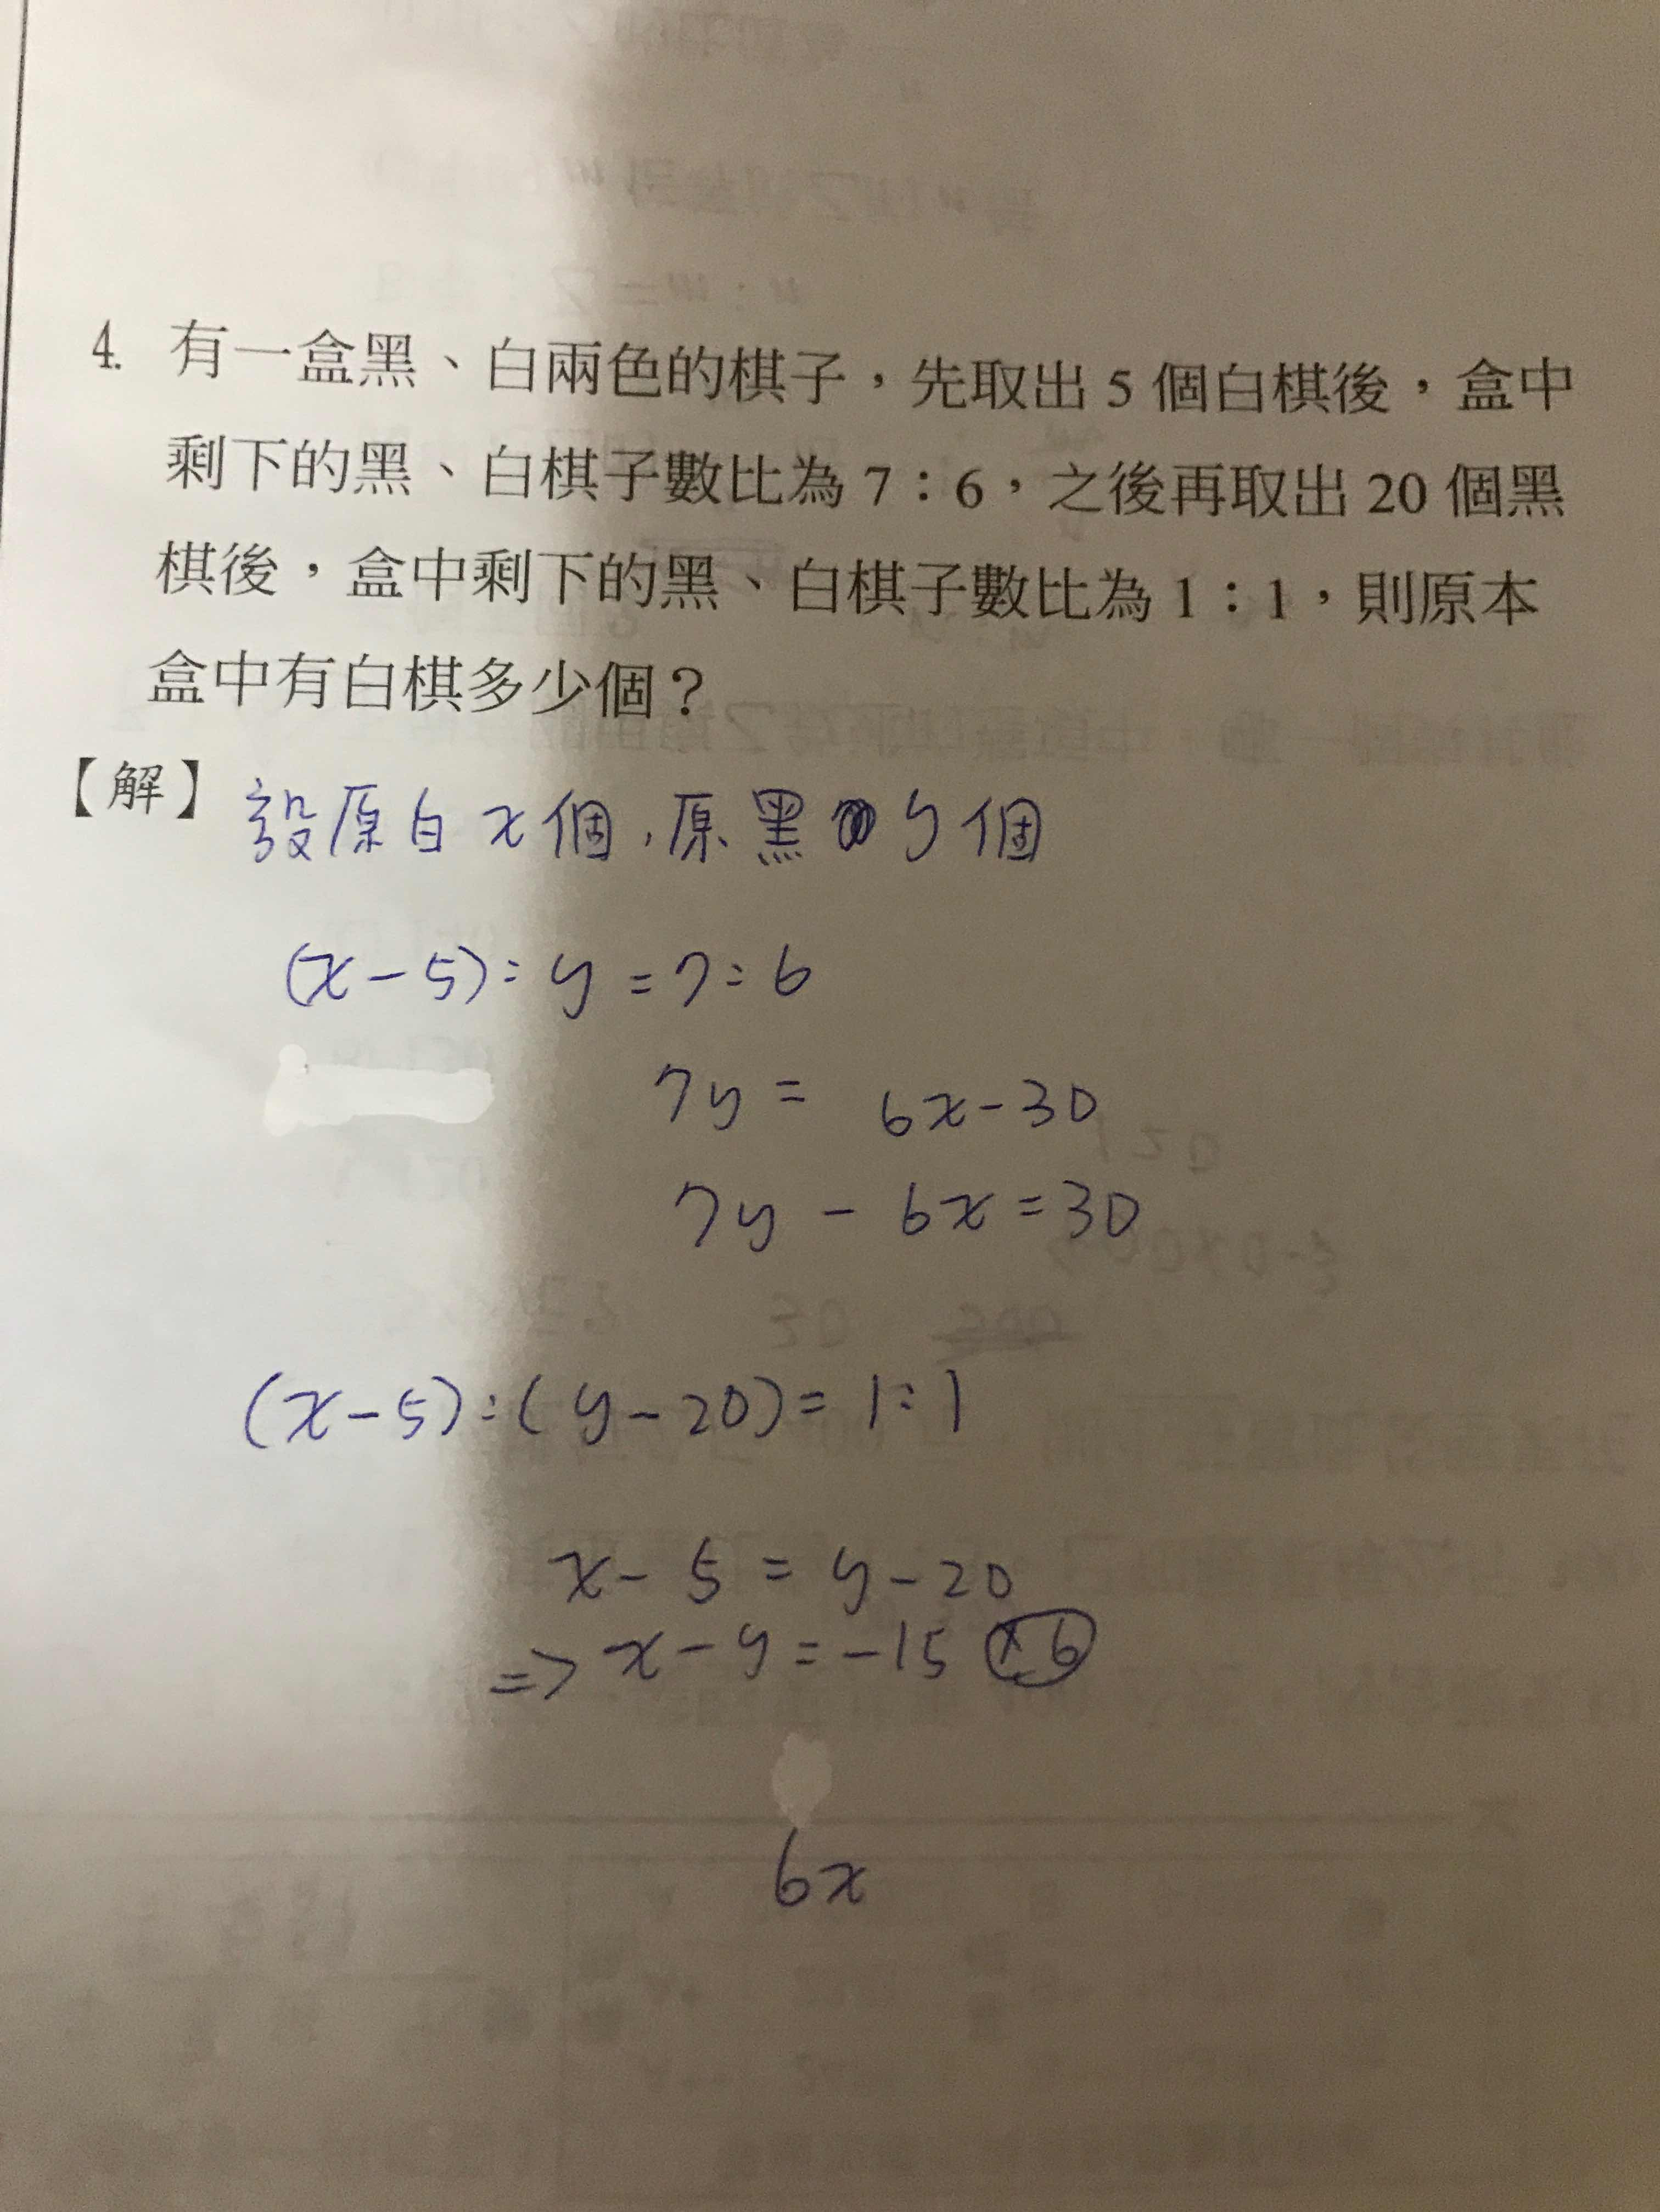 4. 有一盒黑、白兩色的棋子，先取出 5 個白棋後，盒中
剩下的黑、白棋子數比為 7：6，之後再取出 20 個黑
棋後，盒中剩下的黑、白棋子數比為 1：1，則原本
盒中有白棋多少個？
【解】設原白 x 個，原黑 y 個
(x-5):y=7:6
7y= 6x-30
7y - 6x=30
(x-5):(y-20)=1:1
x-5=y-20
=> x-y=-15 ×6
6x